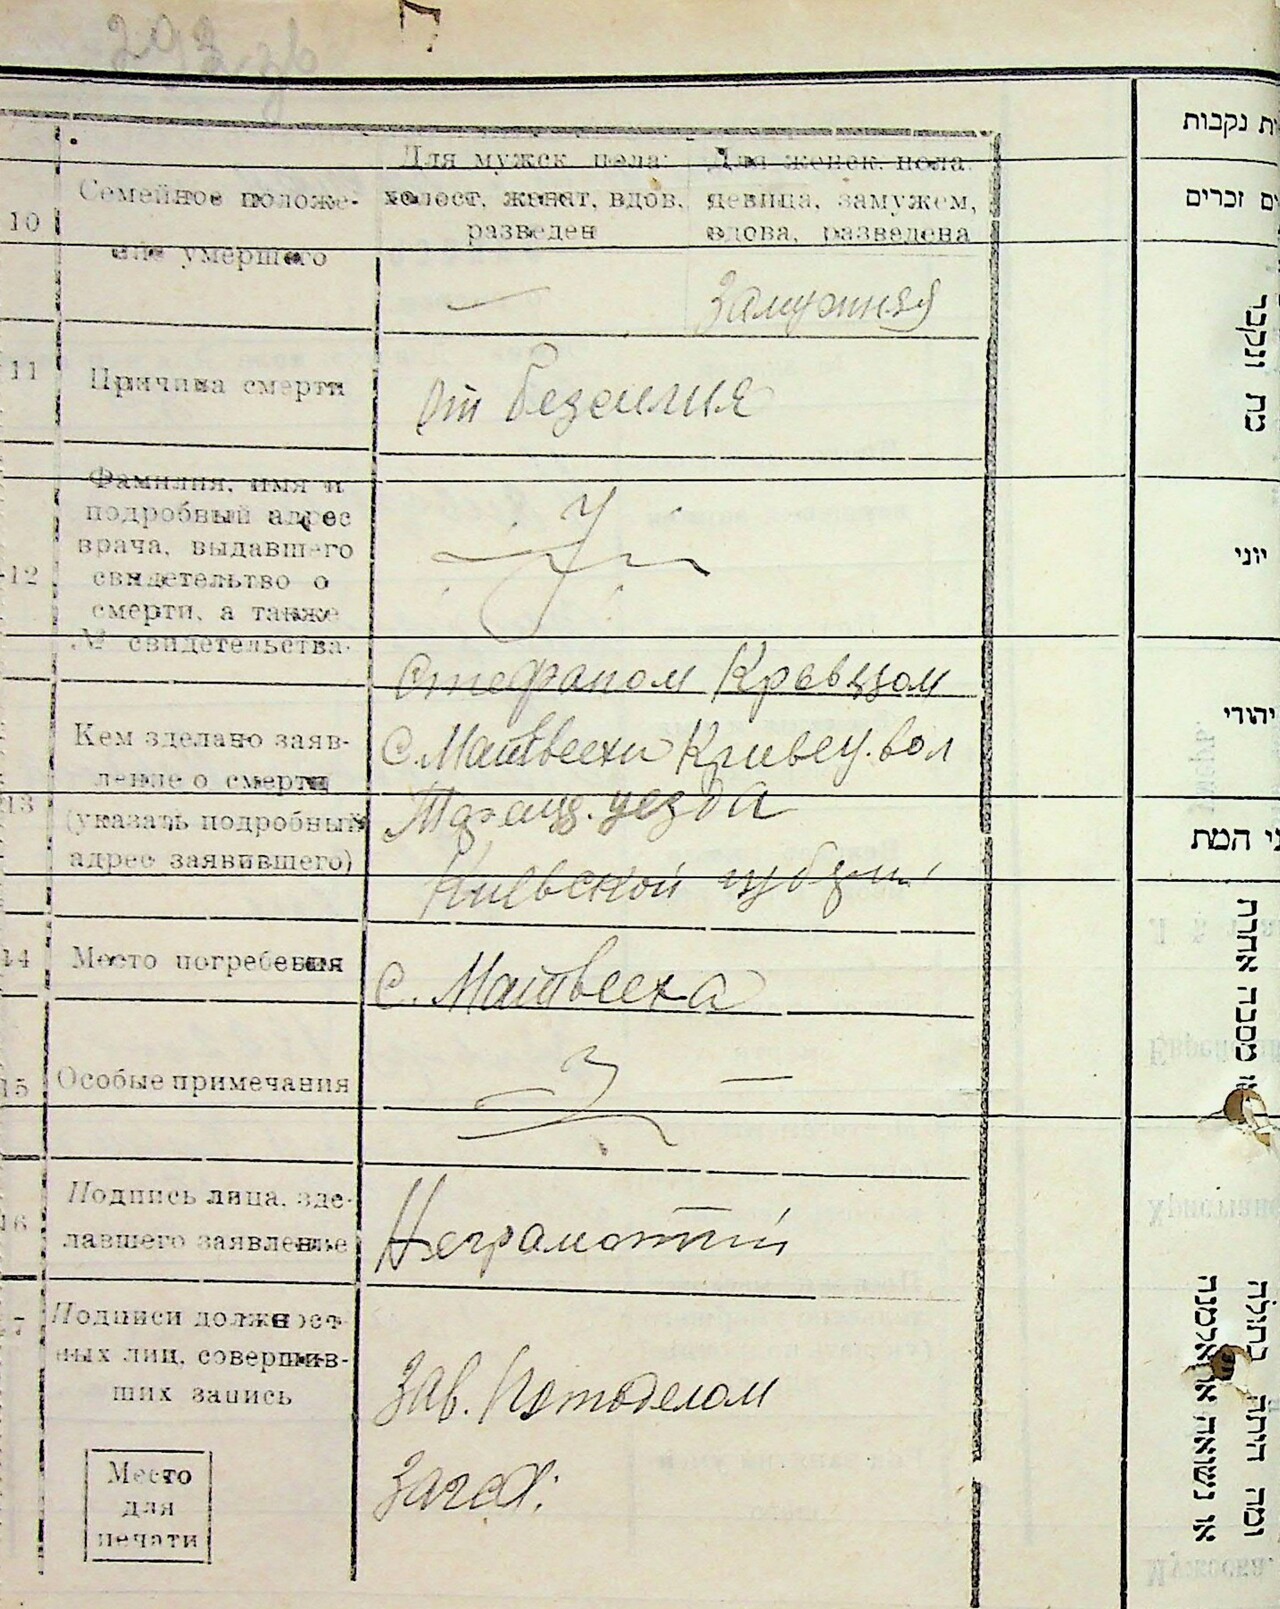 293 зв
Для мужск. пола:
холост, женат, вдов,
разведен
Для женск. пола
девица, замужем,
вдова, разведена
10
Семейное положе-
ние умершего
Замужняя
11
Причина смерти
От безсилия
12
Фамилия, имя и
подробный адрес
врача, выдавшего
свидетельство о
смерти, а также
№ свидетельства.
13
Кем зделано заяв-
ление о смерти
(указать подробный
адрес заявившего)
Стефаном Кревцом
С. Матвеехи Кривец. вол
уезда
Киевской губерни
14
Место погребения
С. Матвееха
15
Особые примечания
16
Подпись лица, зде-
лавшего заявленье
Неграмотный
17
Подписи должност-
ных лиц, совершив-
ших запись
Зав.
Загс
Место
для
печати
נקבות
זכרים
יוני
יהודי
המת
מסבה אחרת